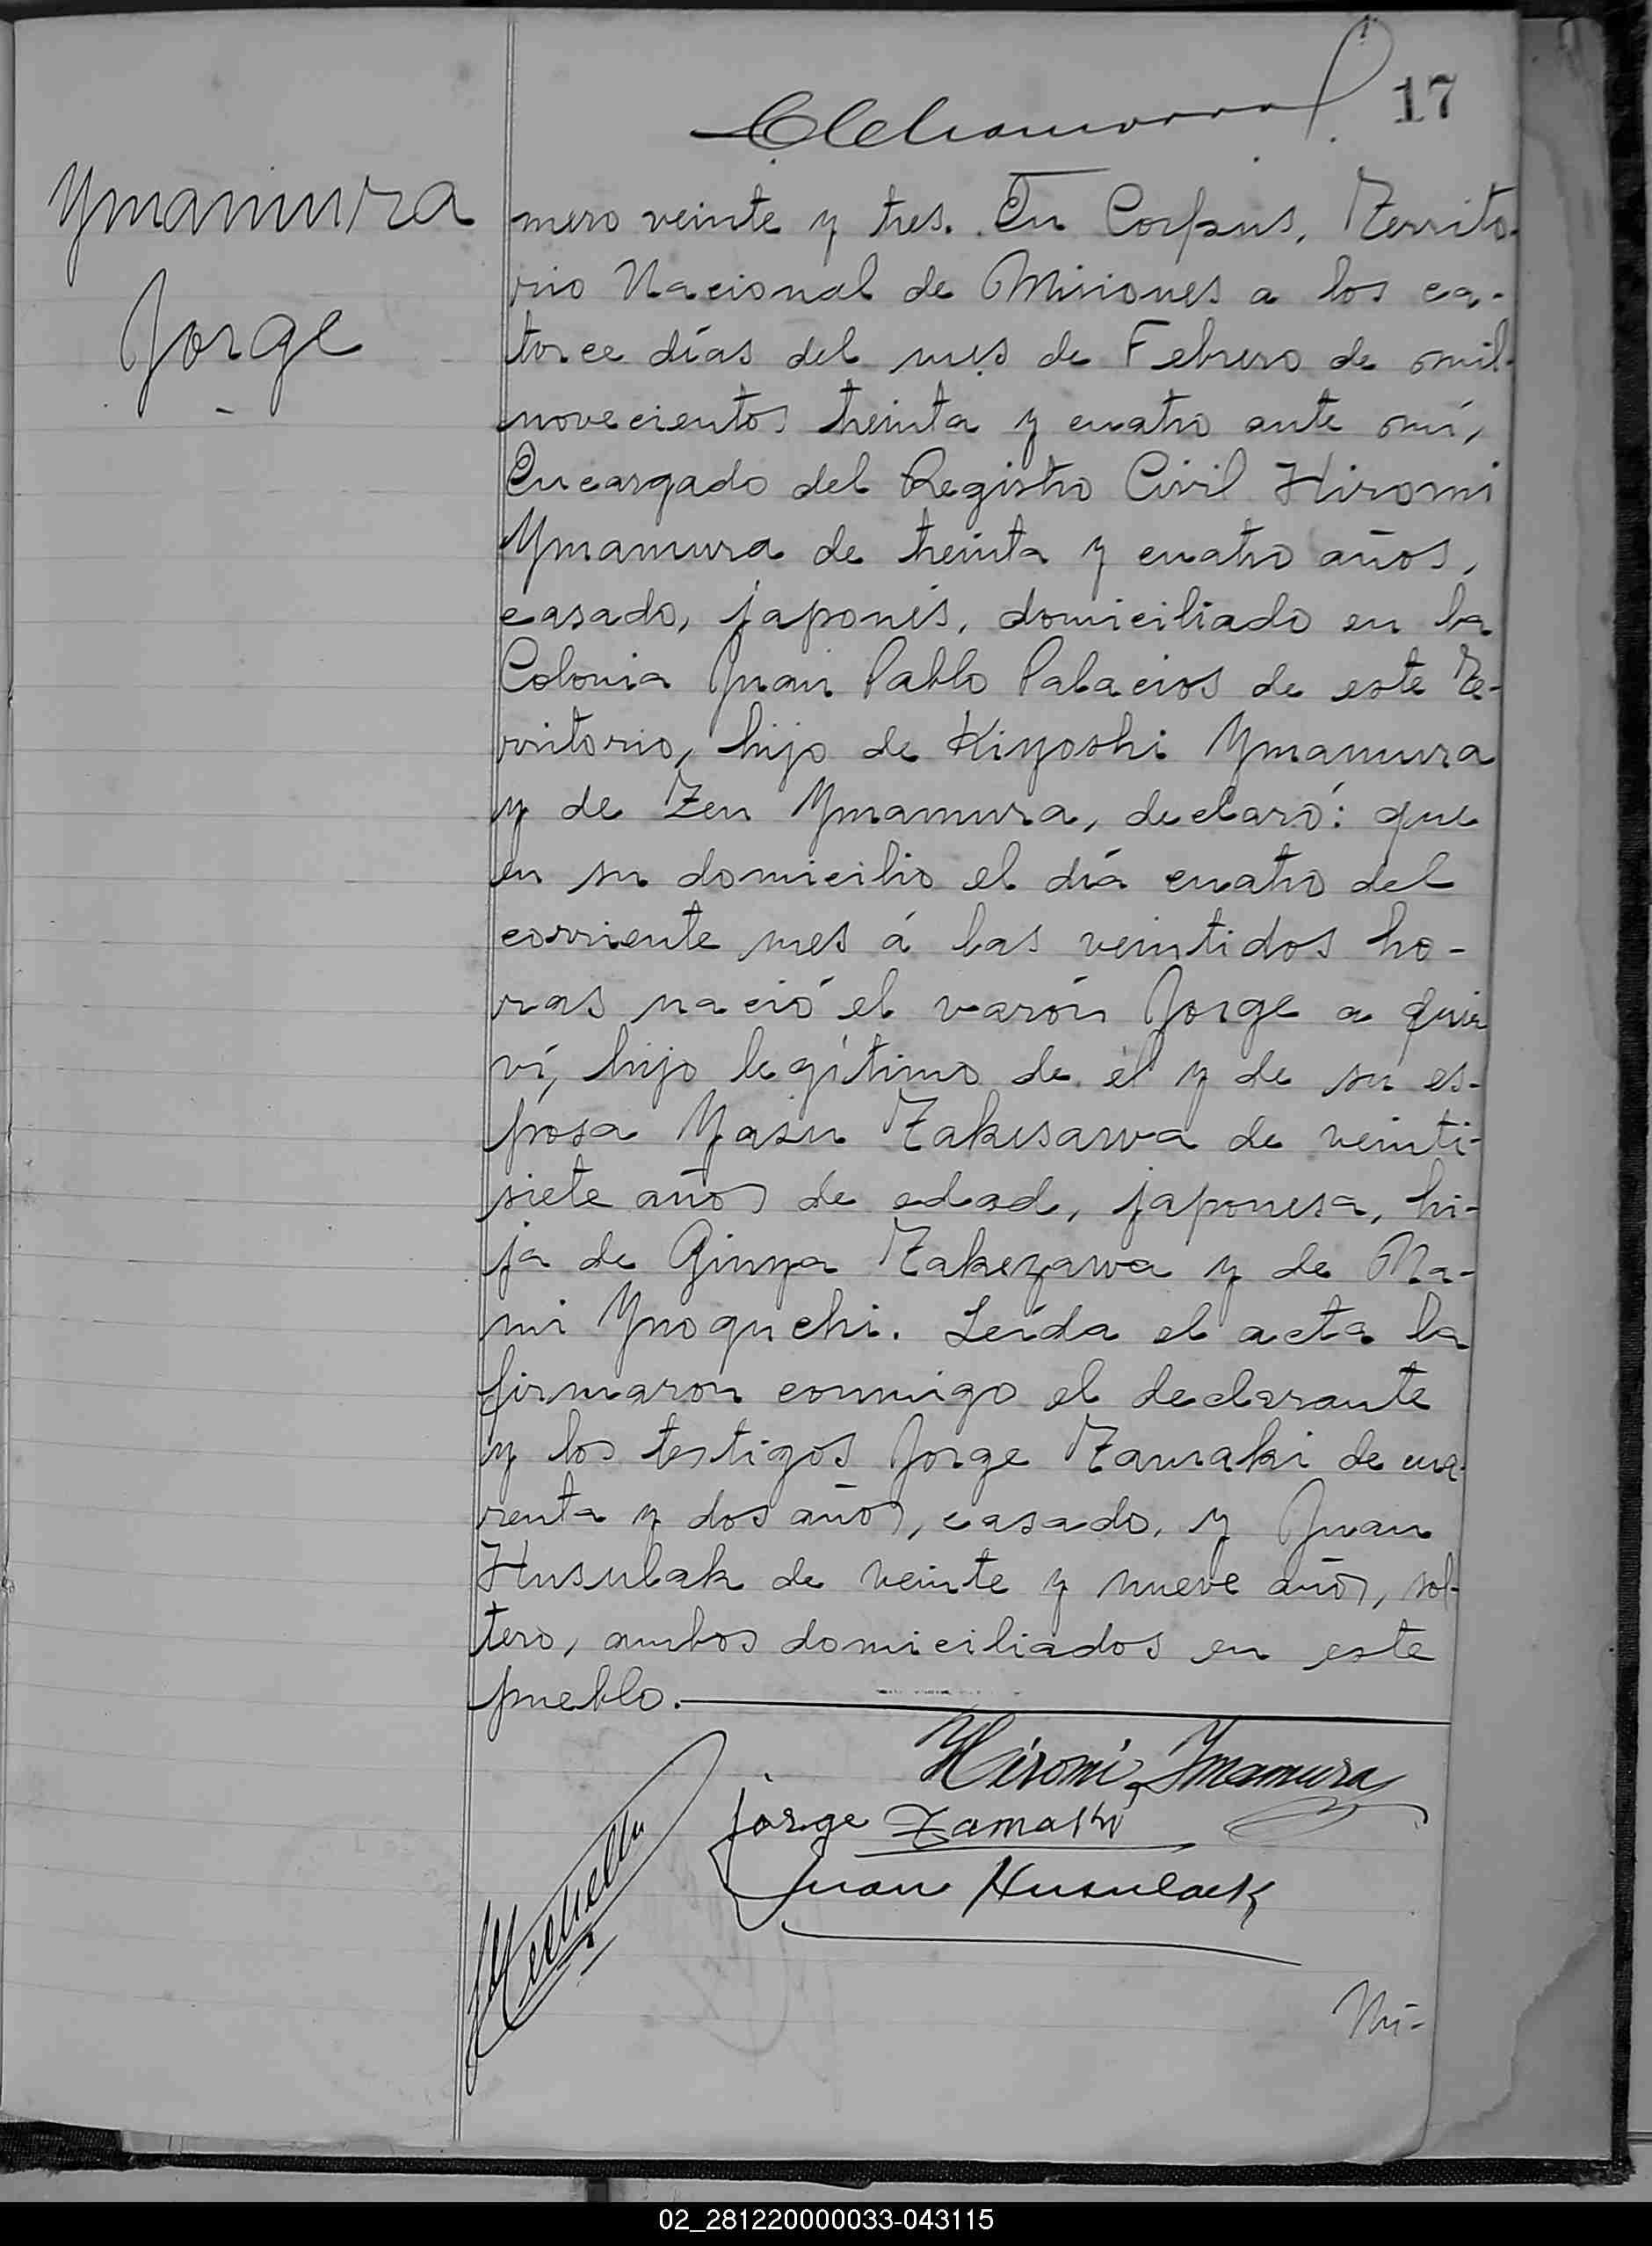 17
Ymamura
Jorge
mero veinte y tres. En Corpus, Territo-
rio Nacional de Misiones a los ca-
torce días del mes de Febrero de mil
novecientos treinta y cuatro ante mí,
Encargado del Registro Civil Hiromi
Ymamura de treinta y cuatro años,
casado, japonés, domiciliado en la
Colonia Juan Pablo Palacios de este Te-
rritorio, hijo de Kiyoshi Ymamura
y de Zen Ymamura, declaró: que
en su domicilio el día cuatro del
corriente mes á las veintidos ho-
ras nació el varón Jorge a quien
ví, hijo legítimo de él y de su es-
posa Yasu Takesawa de veinti-
siete años de edad, japonesa, hi-
ja de Ginya Takezawa y de Ma-
mi Ynoguchi. Leída el acta la
firmaron conmigo el declarante
y los testigos Jorge Tamaki de cua-
renta y dos años, casado, y Juan
Husulak de veinte y nueve años, sol-
tero, ambos domiciliados en este
pueblo.
Hiromi Ymamura
Jorge Tamaki
Juan Husulack
Nú-
02_281220000033-043115